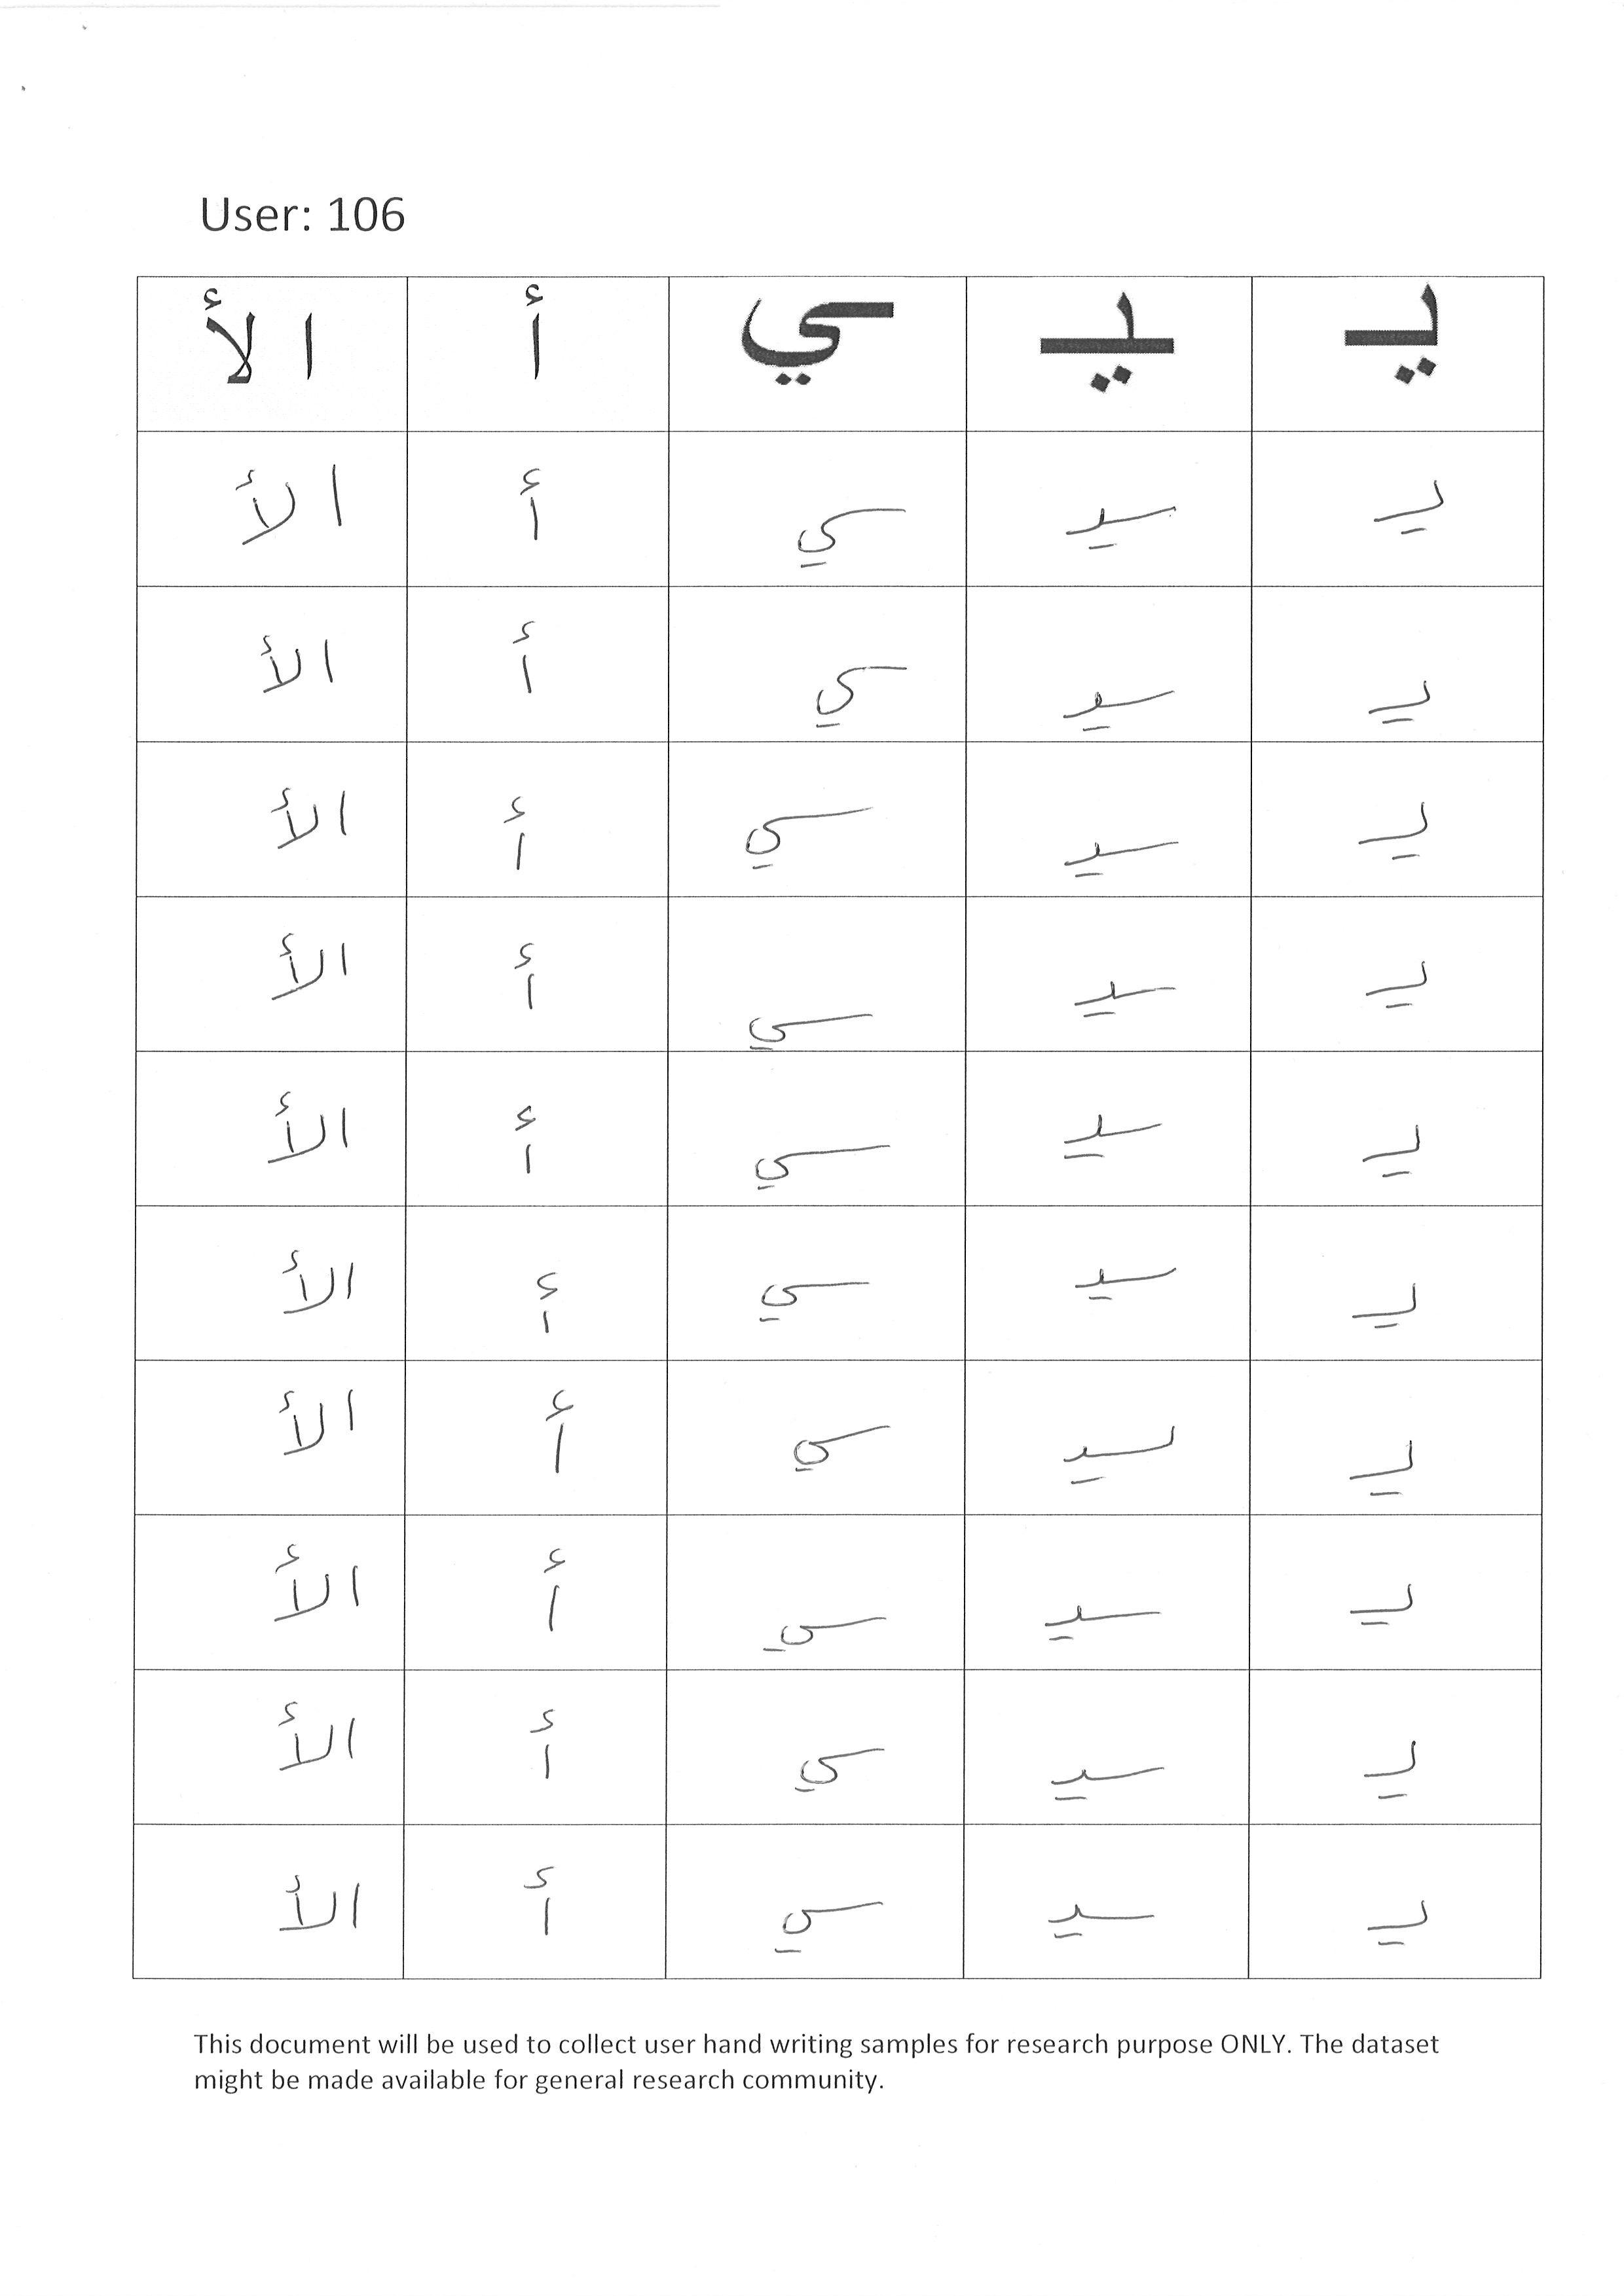 User: 106
يـ ـيـ ـي أ الأ
يـ ـيـ ـي أ الأ
يـ ـيـ ـي أ الأ
يـ ـيـ ـي أ الأ
يـ ـيـ ـي أ الأ
يـ ـيـ ـي أ الأ
يـ ـيـ ـي أ الأ
يـ ـيـ ـي أ الأ
يـ ـيـ ـي أ الأ
يـ ـيـ ـي أ الأ
يـ ـيـ ـي أ الأ
This document will be used to collect user hand writing samples for research purpose ONLY. The dataset
might be made available for general research community.